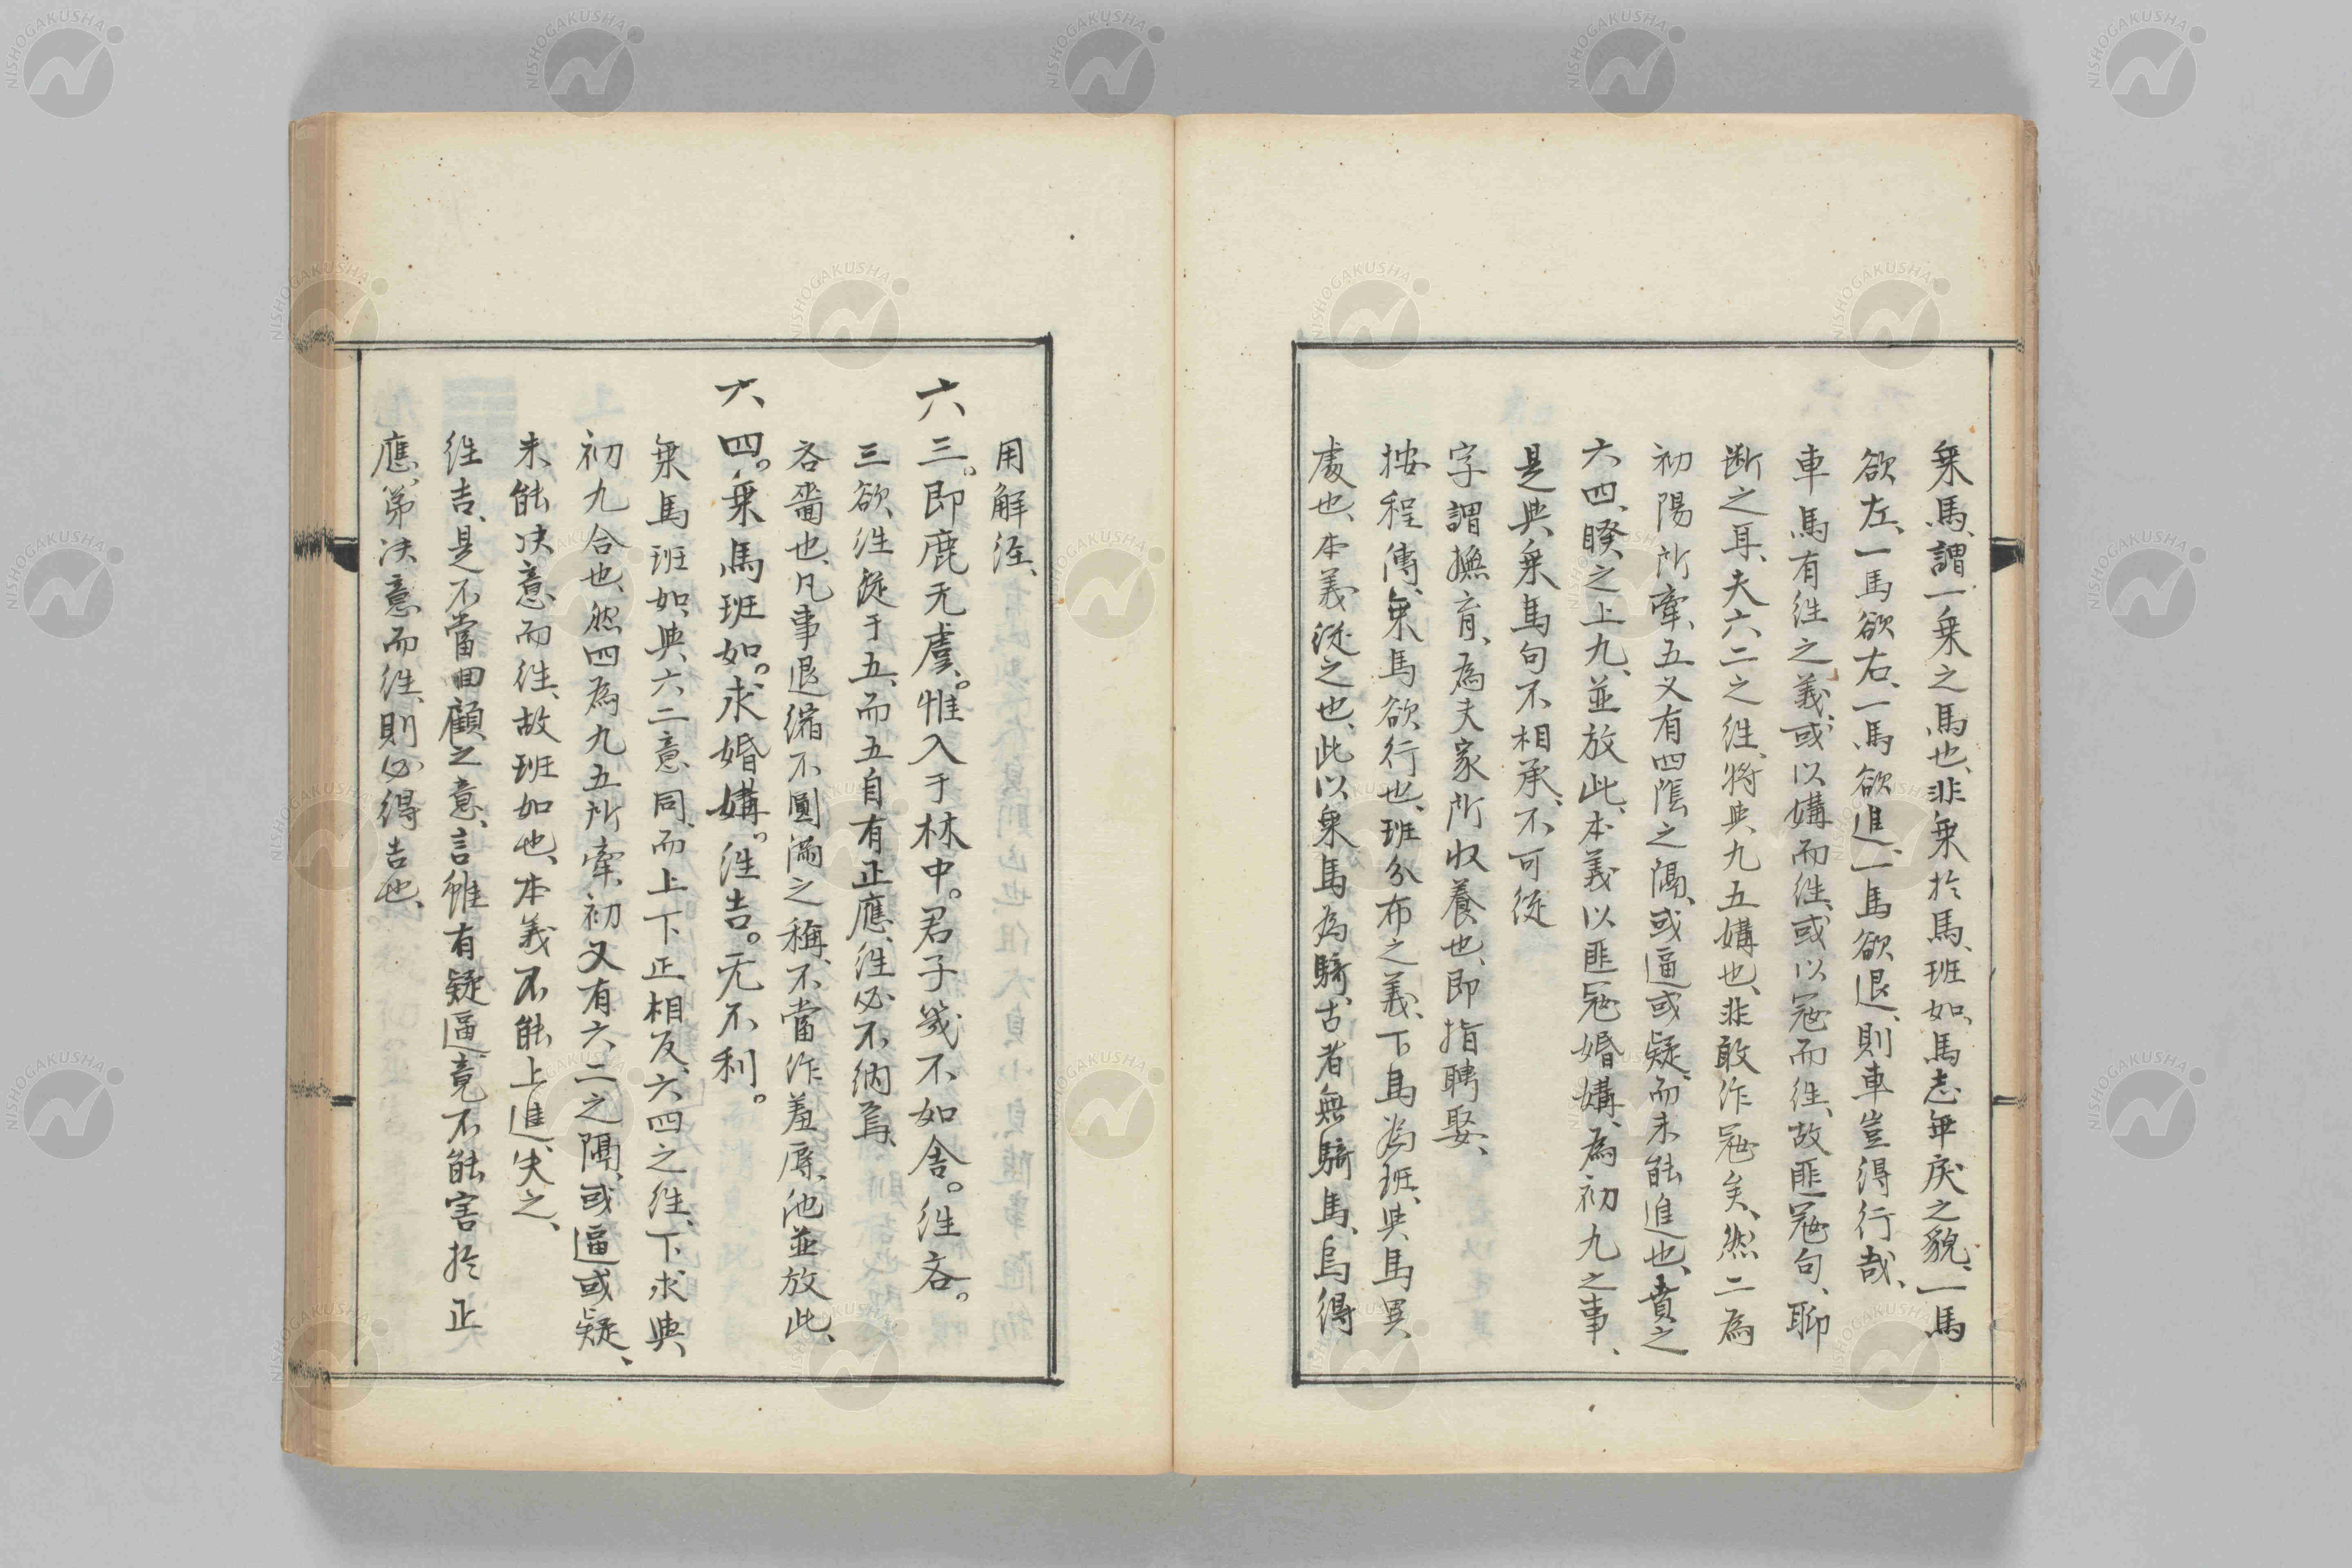 乗馬、謂一乗之馬也、非乗於馬、班如、馬志乖戻之貌、一馬
欲左、一馬欲右、一馬欲進、一馬欲退、則車豈得行哉、
車馬有往之義、或以媾而往、或以冦而往、故匪冦句、聊
断之耳、夫六二之往、將與九五媾也、非敢作冦矣、然二為
初陽所牽、五又有四陰之隔、或逼或疑、而未能進也、賁之
六四、睽之上九、並放此、本義以匪冦婚媾、為初九之事、
是與乗馬句不相承、不可従
字謂撫育、為夫家所収養也、即指聘娶、
按程傳、乗馬欲行也、班分布之義、下馬為班、與馬異
處也、本義従之也、此以乗馬為騎、古者無騎馬、烏得
用解経、
六三。即鹿无虞。惟入于林中。君子幾不如舎。往吝。
三欲往従于五、而五自有正應、往必不納焉、
吝嗇也、凡事退縮不圓満之稱、不當作羞辱、他並放此、
六四。乗馬班如。求婚媾。往吉。无不利。
乗馬班如、與六二意同、而上下正相反、六四之往、下求與
初九合也、然四為九五所牽、初又有六二之隔、或逼或疑、
未能决意而往、故班如也、本義不能上進、失之、
往吉、是不當回顧之意、言雖有疑逼、竟不能害於正
應、第决意而往、則必得吉也、
NISHOGAKUSHA